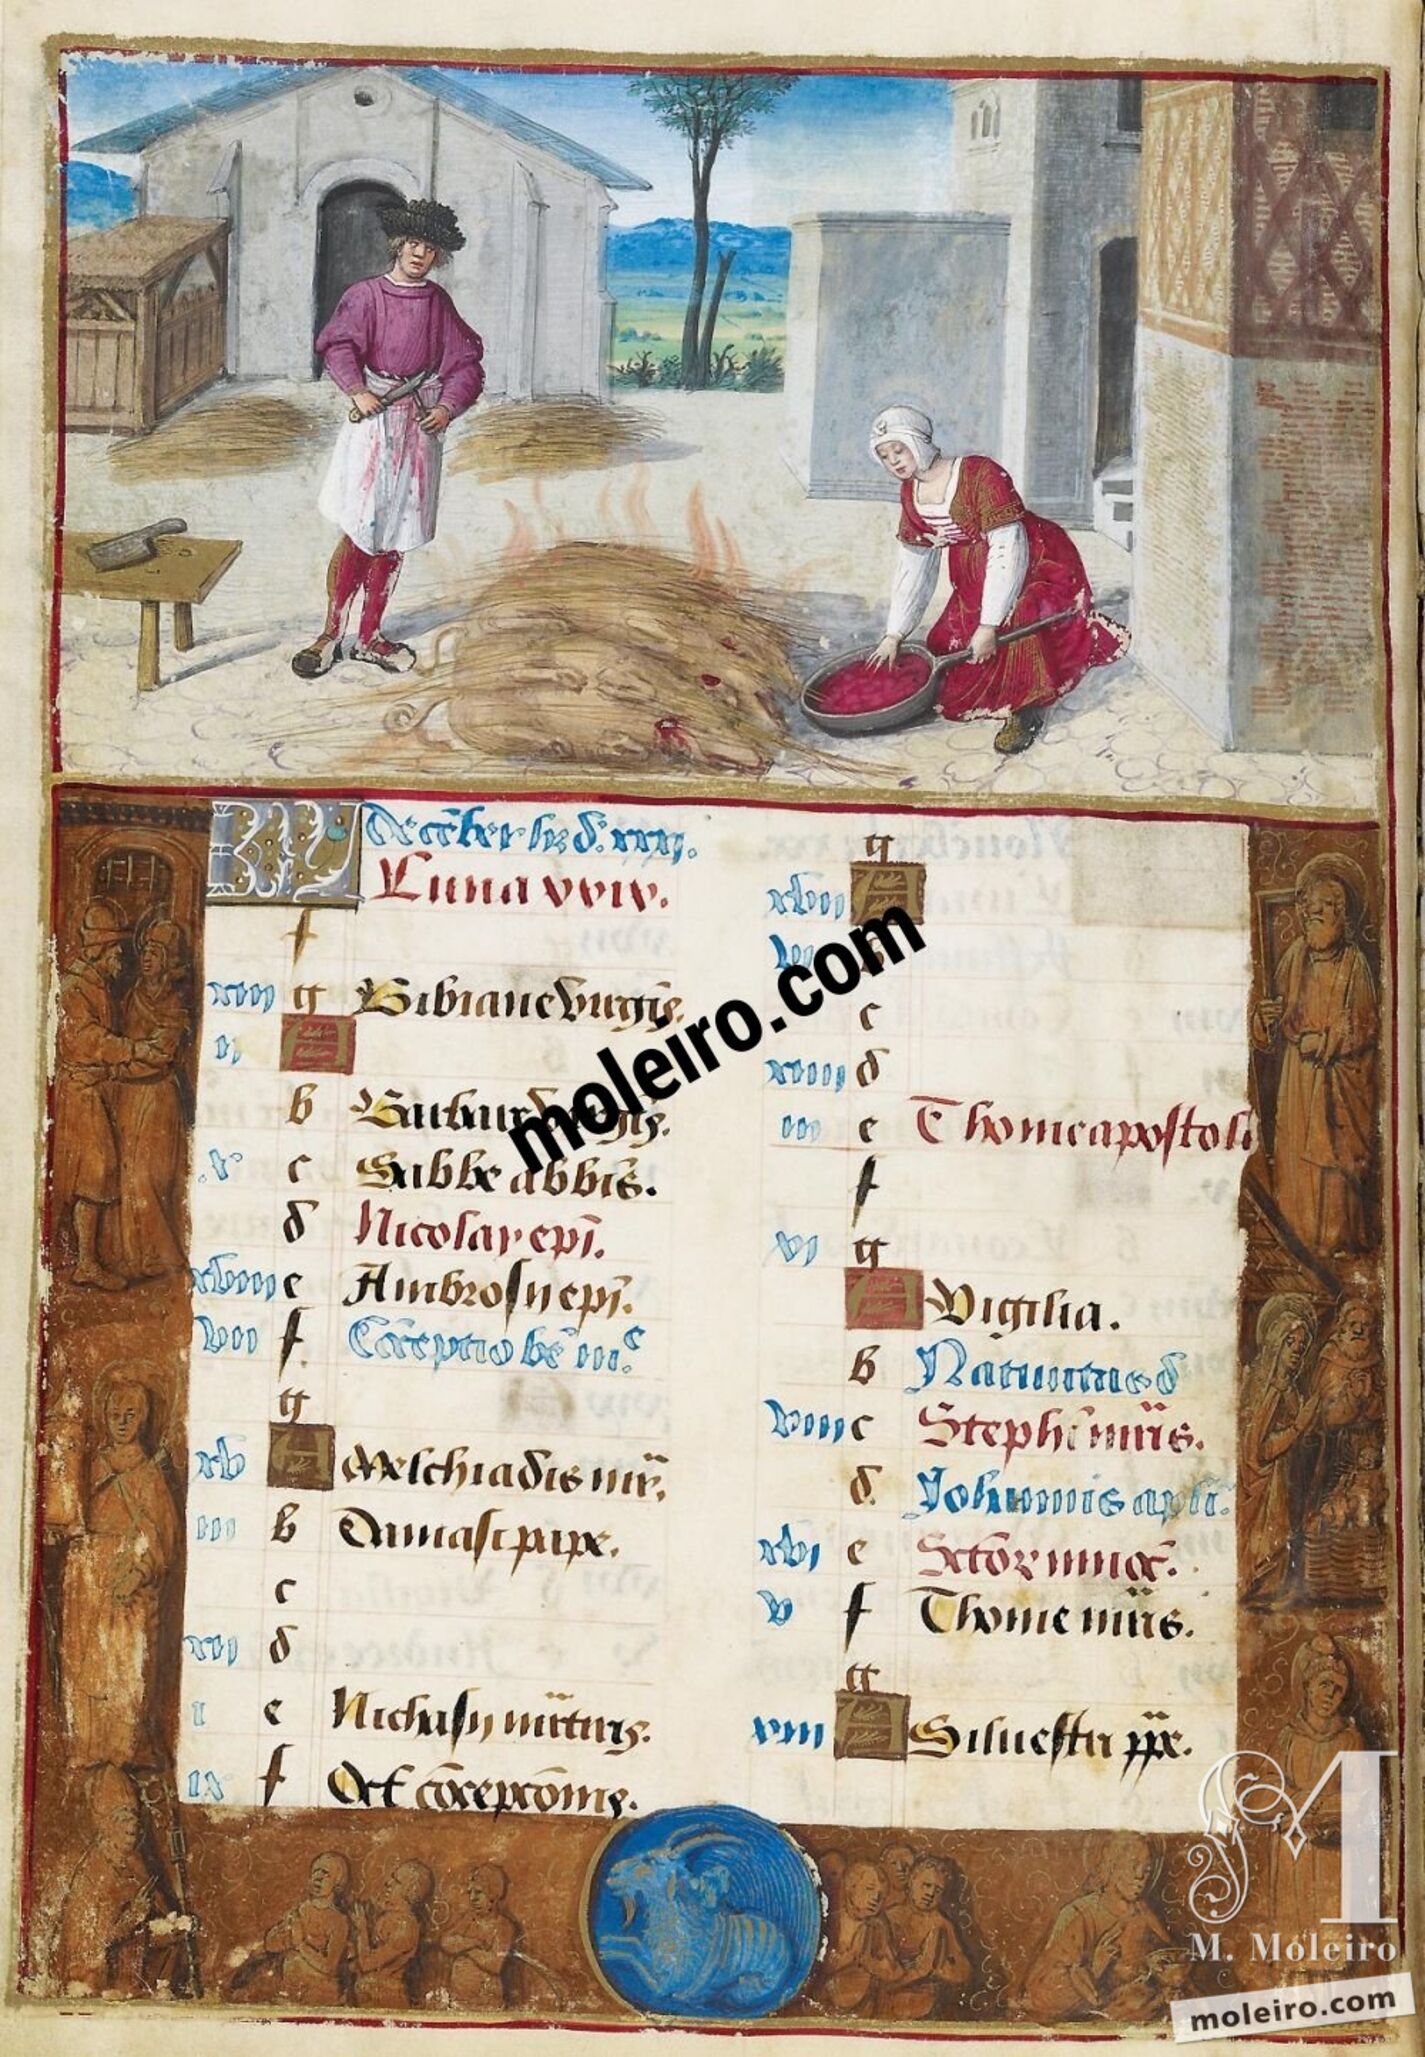 KL December h̄t d. xxxi.
Luna xxix.
f
xiii g Bibiane virgīs.
ii A
b Barbare virgīs.
x c Sabbe abbīs.
d Nicolay epī.
xviii e Ambrosii epī.
vii f Cōceptio bē m.e
g
xv A Melchiadis mr̄.
iiii b Damasi pape.
c
xii d
i e Nichasii martiris.
ix f Oct cōceptiōnis.
g
xvii A
vi b
c
xiiii d
iii e Thome apostoli
f
xi g
A Vigilia.
b Natiuitas d
viii c Stephani mr̄is.
d. Johannis apli.
xvi e Sctōr innoc̄.
v f Thome mr̄is.
g
xiii A Siluestri ppe.
moleiro.com
M
M. Moleiro
moleiro.com